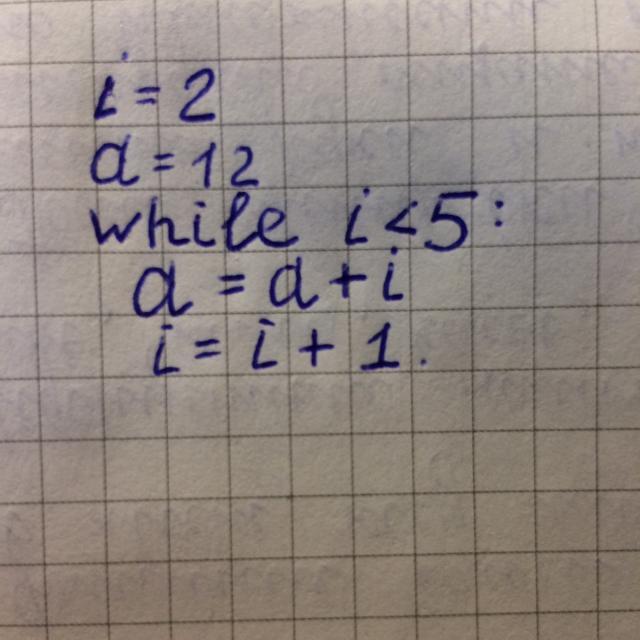 i = 2
a = 12
while i < 5:
a = a + i
i = i + 1.